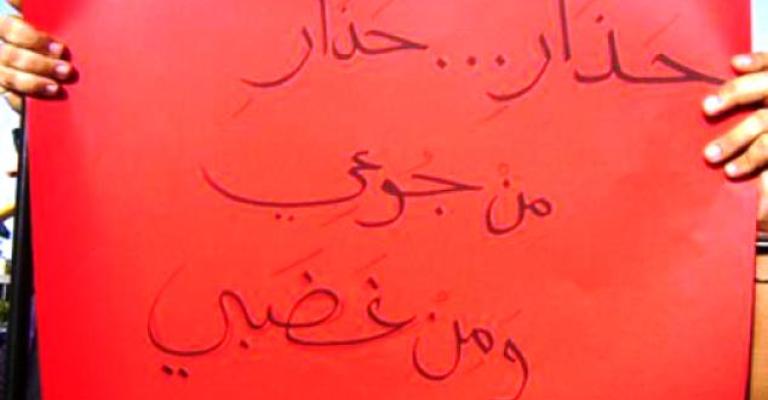 حَذَارِ...حَذَارِ
مِنْ جُوعِي
وَمِنْ غَضَبِي